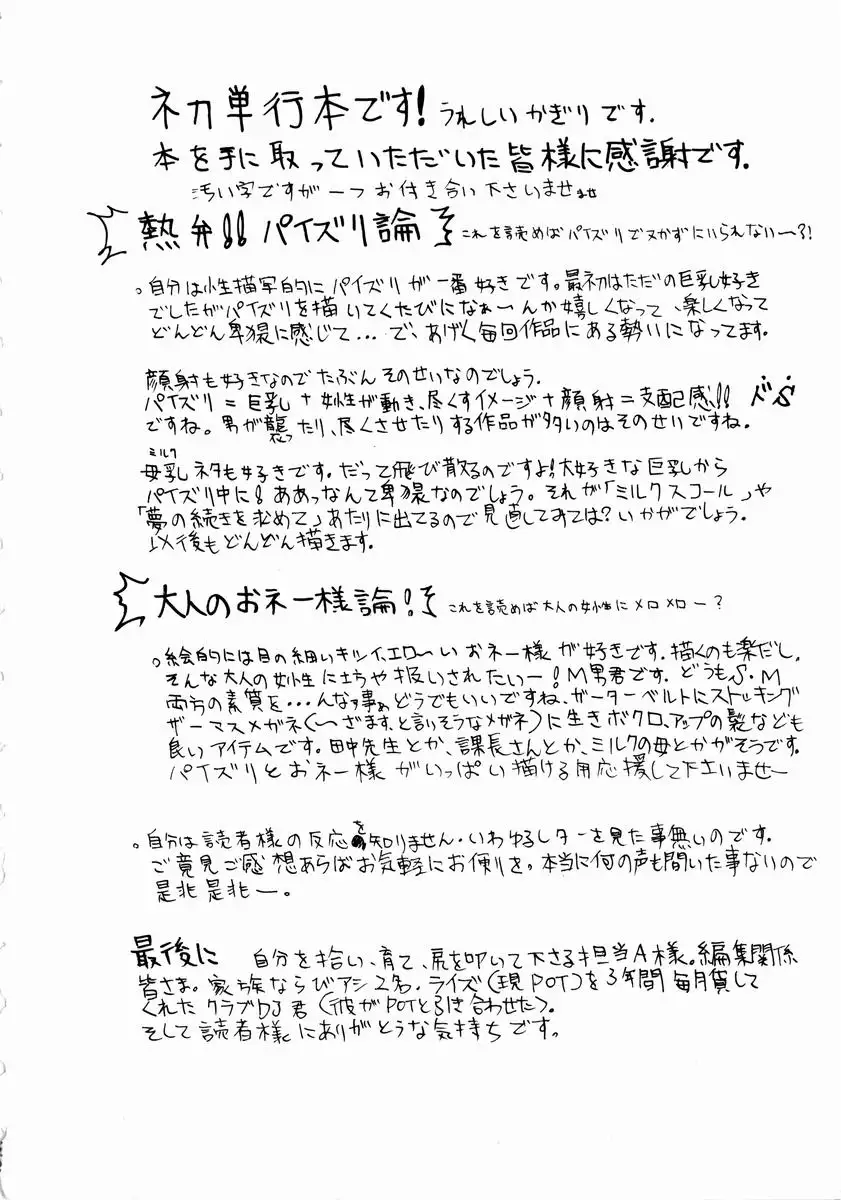 ネカ単行本です! うれしいかぎりです.
本を手に取っていただいた皆様に感謝です.
汚い字ですが一つお付き合い下さいませませ
熱弁!! パイズリ論 これを読めばパイズリでヌかずにいられないー?!
。自分は性描写的にパイズリが一番好きです。最初はただの巨乳好き
でしたがパイズリを描いてくたびになぁーんか嬉しくなって、楽しくなって
どんどん卑猥に感じて...で、あげく毎回作品にある勢いになってます.
顔射も好きなのでたぶんそのせいなのでしょう.
パイズリ=巨乳+女性が動き、尽くすイメージ+顔射=支配感!! ドS
ですね。男が襲ったり、尽くさせたりする作品が多いのはそのせいですね.
ミルク
母乳ネタも好きです.だって飛び散るのですよ!大好きな巨乳から
パイズリ中に!ああっなんて卑猥なのでしょう。それが「ミルクスコール」や
「夢の続きを求めて」あたりに出てるので見直してみては?いかがでしょう.
以後もどんどん描きます.
大人のおネー様論! これを読めば大人の女性にメロメロー?
。絵的には目の細いキツイ、エロ〜いおネー様が好きです.描くのも楽だし、
そんな大人の女性に土ちゃ扱いされたいー!M男君です.どうもS・M
両方の素質を...んなァ事ぁどうでもいいですね、ガーターベルトにストッキング
ザーマスメガネ(〜ざます、と言いそうなメガネ)に生きボクロ、アップの髪なども
良いアイテムです.田中先生とか、課長さんとか、ミルクの母とかがそうです.
パイズリとおネー様がいっぱい描ける用応援して下さいませー
。自分は読者様の反応を知りません.いわゆるレターを見た事無いのです.
ご意見ご感想あらばお気軽にお便りを。本当に何の声も聞いた事ないので
是非是非ー。
最後に 自分を拾い、育て、尻を叩いて下さる担当A様。編集関係
皆さま。家族ならびアシ2名.ライズ(現POT)を3年間毎月貸して
くれたクラブDJ君(彼がPOTと引き合わせた).
そして読者様にありがとうな気持ちです。